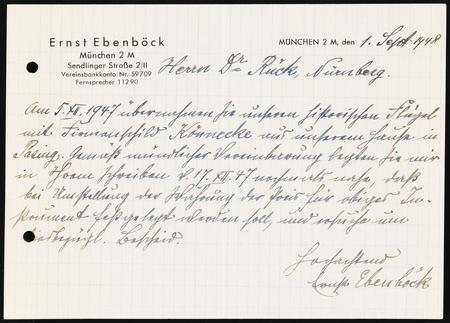 Ernst Ebenböck
München 2 M
Sendlinger Straße 2/II
Vereinsbankkonto Nr. 59709
Fernsprecher 11290
MÜNCHEN 2 M, den 1. Sept. 1948
Herrn Dr Rück, Nürnberg.
Am 5. XII. 1947 übernahmen Sie unseren historischen Flügel
mit Firmenschild Könnecke aus unserem Hause in
Pasing. Gemäß mündlicher Vereinbarung legten Sie mir
in Ihrem Schreiben v. 17. XII. 47 nochmals nahe, daß
bei Umstellung der Währung der Preis für obiges In-
strument festgelegt werden soll, und ersuche um
diesbezügl. Bescheid.
Hochachtend
Ernst Ebenböck